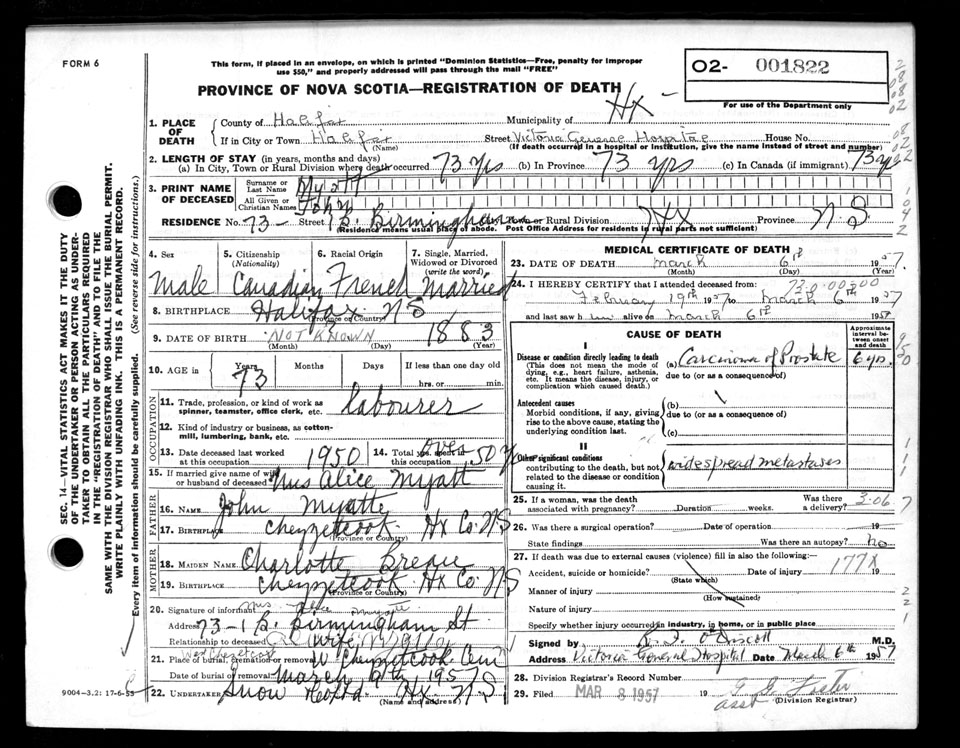 FORM 6
This form, if placed in an envelope, on which is printed "Dominion Statistics—Free, penalty for improper
use $50," and properly addressed will pass through the mail "FREE"
O2- 001822
PROVINCE OF NOVA SCOTIA—REGISTRATION OF DEATH
Hx -
For use of the Department only
1. PLACE OF DEATH
County of Halifax Municipality of
If in City or Town Halifax Street Victoria General Hospital House No.
(Name) (If death occurred in a hospital or institution, give the name instead of street and number)
2. LENGTH OF STAY (in years, months and days)
(a) In City, Town or Rural Division where death occurred 73 yrs (b) In Province 73 yrs (c) In Canada (if immigrant) 73 yrs
3. PRINT NAME OF DECEASED
Surname or Last Name Myatt
All Given or Christian Names John
RESIDENCE No. 73- Street 1B. Birmingham or Rural Division Hx Province N.S
(Residence means usual place of abode. Post Office Address for residents in rural parts not sufficient)
4. Sex 5. Citizenship (Nationality) 6. Racial Origin 7. Single, Married, Widowed or Divorced (write the word)
Male Canadian French Married
8. BIRTHPLACE Halifax NS
(Province or Country)
9. DATE OF BIRTH NOT KNOWN 1883
(Month) (Day) (Year)
10. AGE in Years 73 Months Days If less than one day old
hrs. or min.
OCCUPATION
11. Trade, profession, or kind of work as
spinner, teamster, office clerk, etc. labourer
12. Kind of industry or business, as cotton-
mill, lumbering, bank, etc.
13. Date deceased last worked
at this occupation 1950
14. Total yrs. spent in
this occupation over 50 y
15. If married give name of wife
or husband of deceased Mrs Alice Myatt
FATHER
16. NAME John Myatte
17. BIRTHPLACE Chezzetcook Hx Co. NS
(Province or Country)
MOTHER
18. MAIDEN NAME Charlotte Breau
19. BIRTHPLACE Chezzetcook Hx Co. NS
(Province or Country)
20. Signature of informant Mrs Alice Myatte
Address 73-1B. Birmingham St
Relationship to deceased wife
West Chezetcook
21. Place of burial, cremation or removal W Chezzetcook Cem
Date of burial or removal March 1957
22. UNDERTAKER Snow Hx. N.S
(Name and address)
9004-3.2: 17-6-55
MEDICAL CERTIFICATE OF DEATH
23. DATE OF DEATH March 6th 1957.
(Month) (Day) (Year)
24. I HEREBY CERTIFY that I attended deceased from:
730.00300
February 19th 1957 to March 6th 1957
and last saw him alive on March 6th 1957
CAUSE OF DEATH
Approximate interval between onset and death
I
Disease or condition directly leading to death
(This does not mean the mode of
dying, e.g., heart failure, asthenia,
etc. It means the disease, injury, or
complication which caused death.)
(a) Carcinoma of Prostate 6 yrs.
due to (or as a consequence of)
Antecedent causes
Morbid conditions, if any, giving
rise to the above cause, stating the
underlying condition last.
(b)
due to (or as a consequence of)
(c)
II
Other significant conditions
contributing to the death, but not
related to the disease or condition
causing it.
widespread metastases
25. If a woman, was the death
associated with pregnancy? Duration weeks. Was there a delivery? 3.06 7
26. Was there a surgical operation? Date of operation 19
State findings Was there an autopsy? no
27. If death was due to external causes (violence) fill in also the following:—
Accident, suicide or homicide? Date of injury 19
(State which)
177X
Manner of injury
(How sustained)
Nature of injury
Specify whether injury occurred in industry, in home, or in public place
Signed by O'Driscoll M.D.
Address Victoria General Hospital Date March 6th 1957
28. Division Registrar's Record Number
29. Filed MAR 8 1957 19
asst (Division Registrar)
SEC. 14—VITAL STATISTICS ACT MAKES IT THE DUTY
OF THE UNDERTAKER OR PERSON ACTING AS UNDER-
TAKER TO OBTAIN ALL THE PARTICULARS REQUIRED
IN THE "REGISTRATION OF DEATH" AND TO FILE THE
SAME WITH THE DIVISION REGISTRAR WHO SHALL ISSUE THE BURIAL PERMIT.
WRITE PLAINLY WITH UNFADING INK. THIS IS A PERMANENT RECORD.
Every item of information should be carefully supplied. (See reverse side for instructions.)